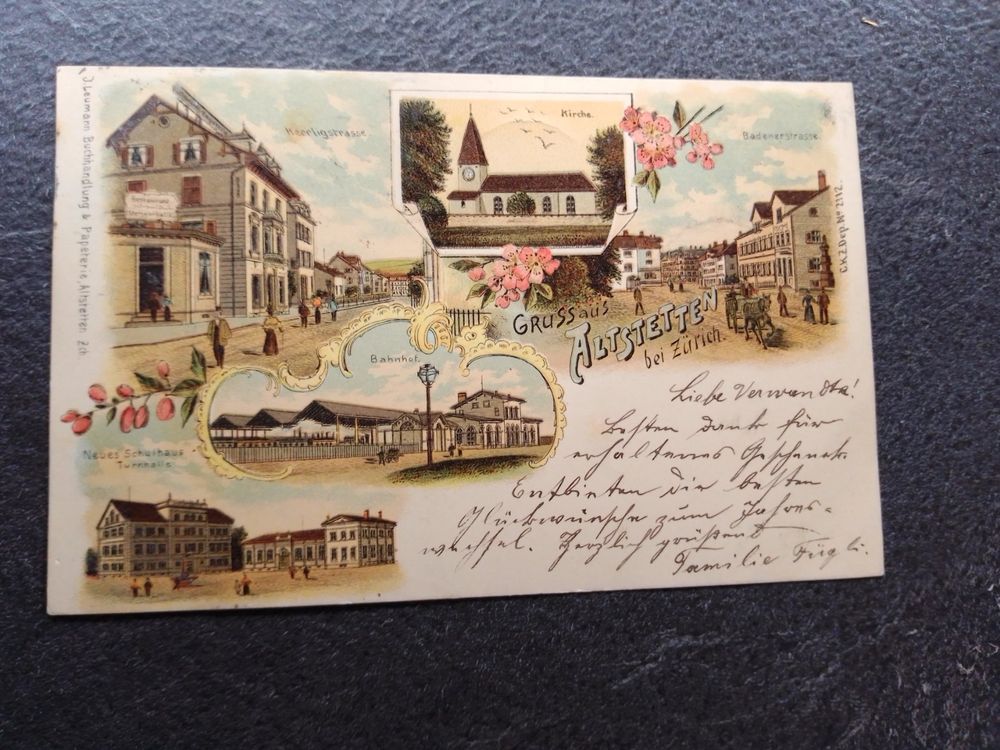 J. Leumann Buchhandlung & Papeterie, Altstetten Zch
Heerligstrasse
Restaurant
Kirche.
Badenerstrasse
Dep. No 2172.
GRUSS aus
ALTSTETTEN
bei Zürich.
Bahnhof.
Neues Schulhaus
Turnhalle
Liebe Verwandte!
Besten Dank für
erhaltenes Geschenk
Entbieten die besten
Glückwünsche zum Jahres-
wechsel. Herzlich grüßend
Familie Fügli.